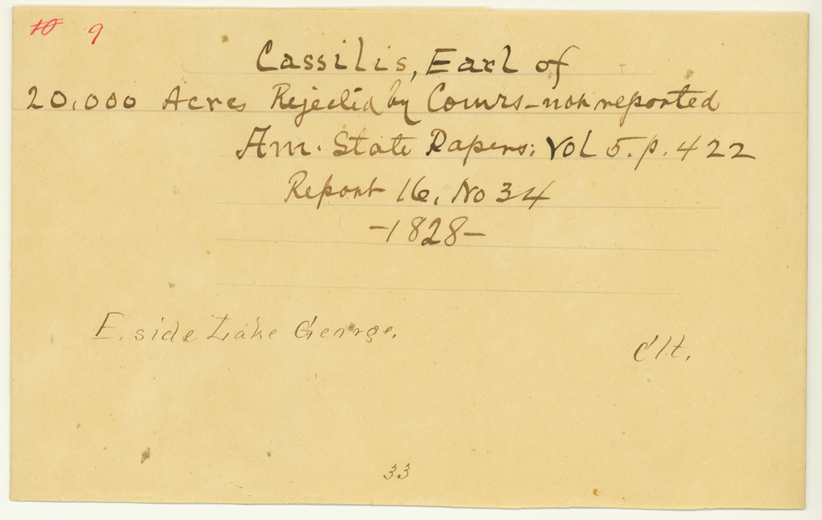 10 9
Cassilis, Earl of
20,000 Acres Rejected by Comrs - not reported
Am. State Papers: Vol 5. p. 422
Report 16, No 34
- 1828 -
E. side Lake George.
33